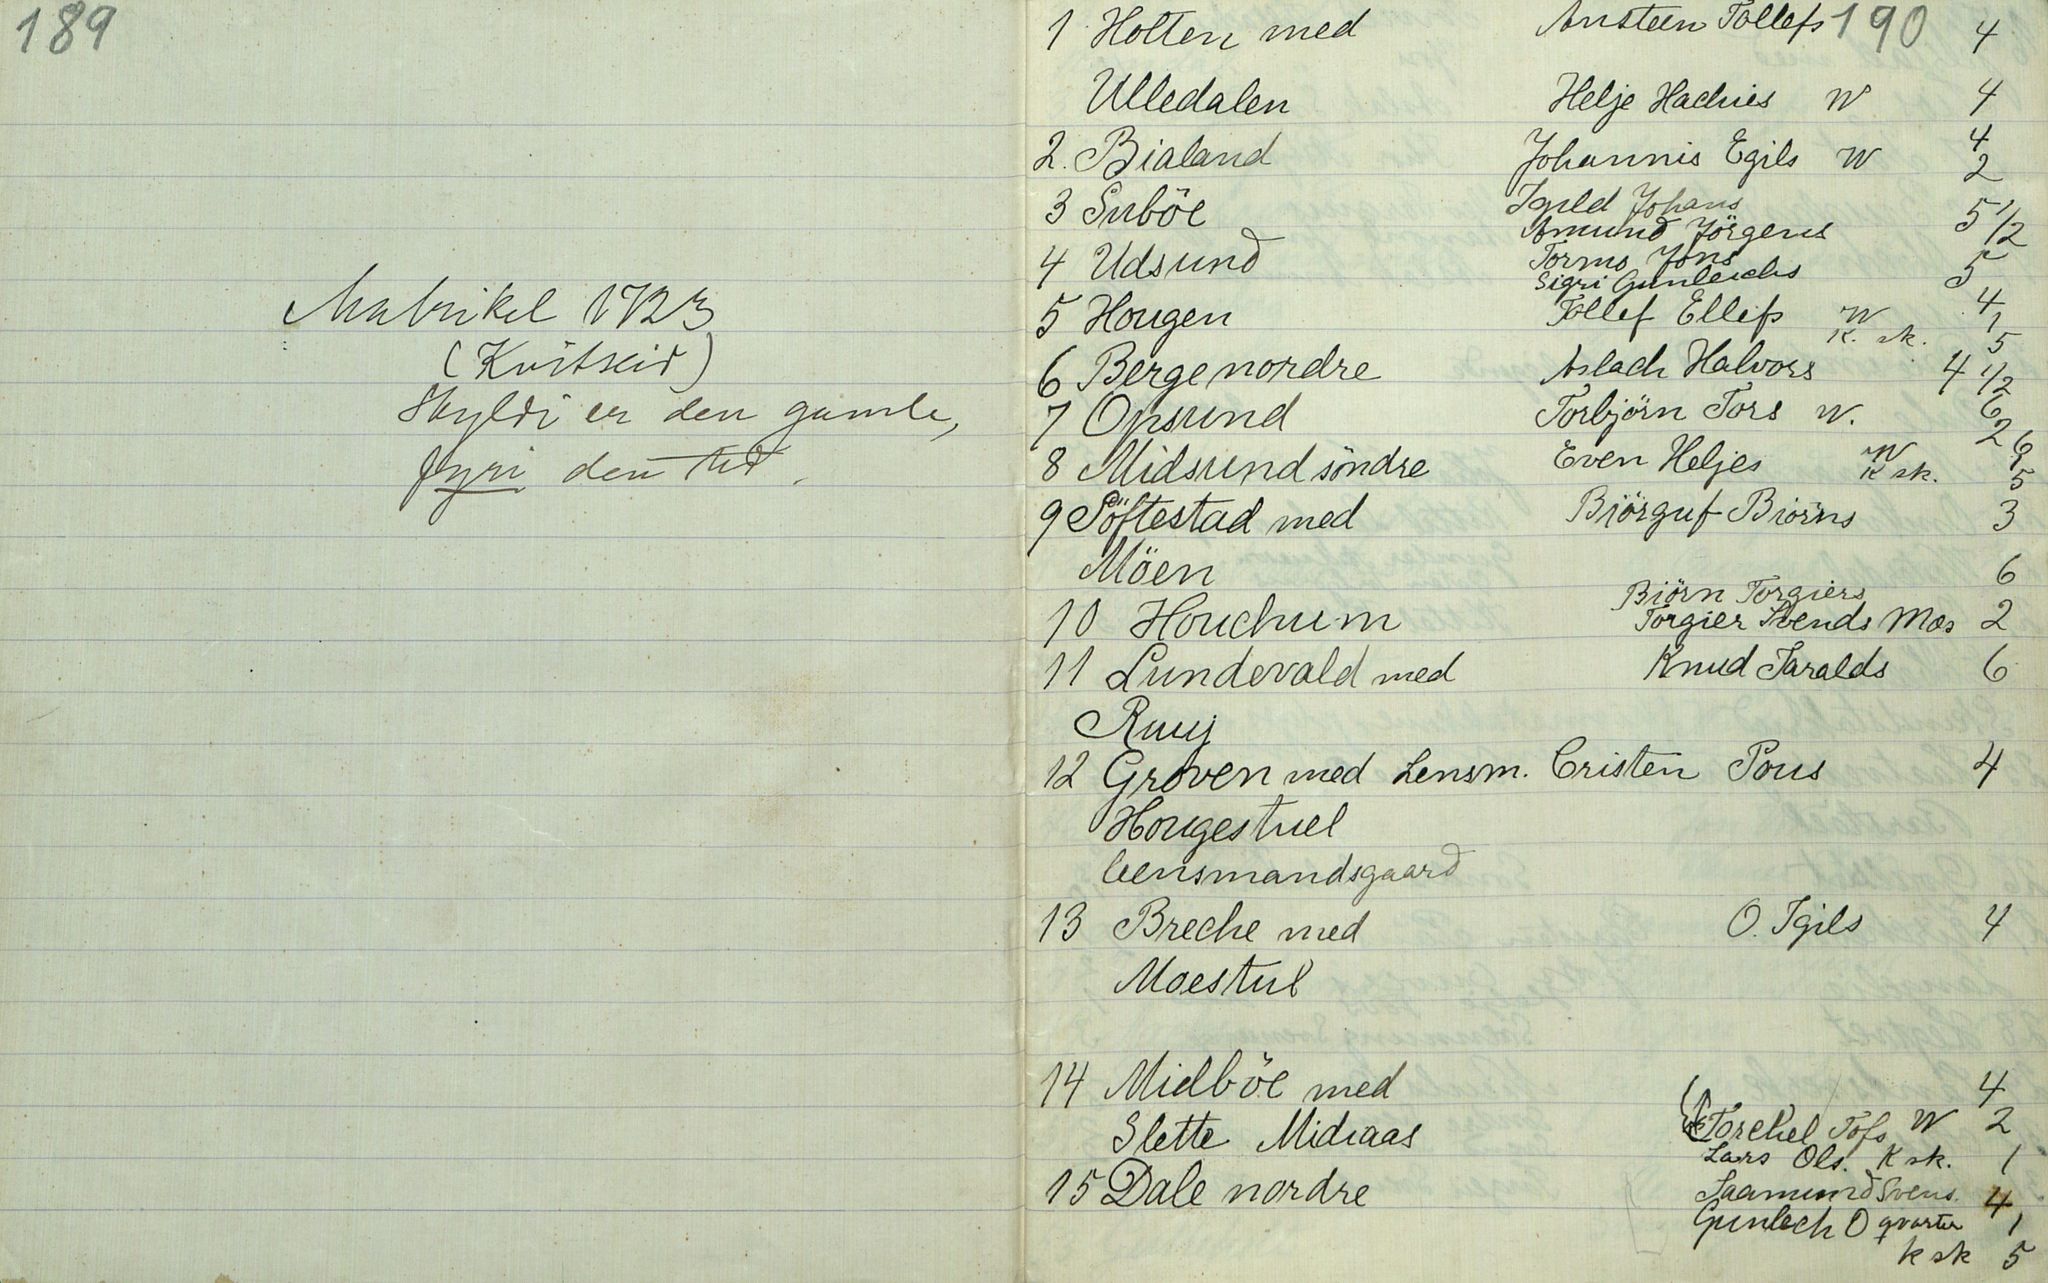 189
Matrikel 1723
(Kvitseid)
Skyldi er den gamle,
fyri den tid.
190
1 Holten med Ansteen Tollefs 4
Ulledalen Helje Hachies W 4
2. Bialand Johannis Egils W 4 2
3 Suböe Igild Johans
Amund Jörgens 5 1/2
4 Udsund Tormo Jons
Sigri Gunleichs 5
5 Hougen Tollef Ellefs W 4 1
K. sk. 5
6 Berge nordre Aslach Halvors 4 1/2
7 Opsund Torbjörn Tors W. 6 2
8 Midsund söndre Even Heljes W 6
K sk. 5
9 Söftestad med Biörguf Biörns 3
Möen 6
Biörn Torgiers
10 Houchum Torgier Svends Mos 2
11 Lundevald med Knud Taralds 6
Ruuj
12 Groven med Lensm. Cristen Pous 4
Hougestuel
lensmandsgaard
13 Breche med O. Igils 4
Moestul
14 Midböe med 4
Slette Midraas Torchel Tofs W 2
Lars Ols. K sk. 1
15 Dale nordre Saamund Svens. 4
Gunlech O qvarter 1
k sk 5